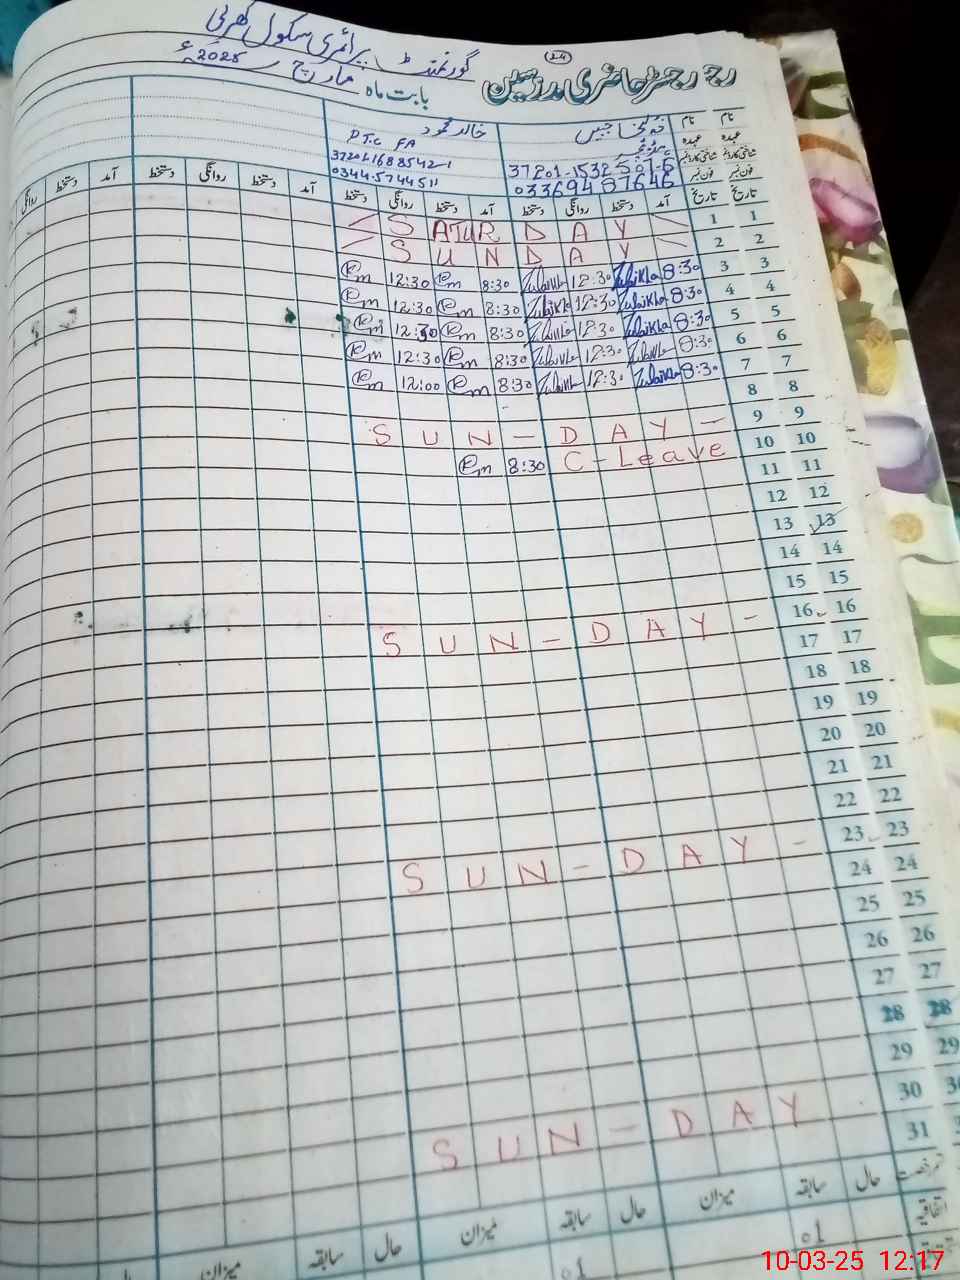 24
رجسٹر حاضری مدرسین گورنمنٹ پرائمری سکول
بابت ماہ مارچ 2025ء
نام نام خالد محمود
عہدہ عہدہ PTC FA
شناختی کارڈ نمبر 37201-1532501-6 37201-1688542-1
فون نمبر فون نمبر 03369487646 0344-5744511
تاریخ تاریخ آمد دستخط روانگی دستخط آمد دستخط روانگی دستخط آمد دستخط روانگی دستخط آمد دستخط روانگی
1 1 SATURDAY
2 2 SUNDAY
3 3 8:30 Zulaikha 12:30 Zulaikha 8:30 Km 12:30 Km
4 4 8:30 Zulaikha 12:30 Zulaikha 8:30 Km 12:30 Km
5 5 8:30 Zulaikha 12:30 Zulaikha 8:30 Km 12:30 Km
6 6 8:30 Zulaikha 12:30 Zulaikha 8:30 Km 12:30 Km
7 7 8:30 Zulaikha 12:30 Zulaikha 8:30 Km 12:00 Km
8 8
9 9 SUN-DAY-
10 10 C-Leave 8:30 Km
11 11
12 12
13 13
14 14
15 15
16 16 SUN-DAY-
17 17
18 18
19 19
20 20
21 21
22 22
23 23 SUN-DAY-
24 24
25 25
26 26
27 27
28 28
29 29
30 30 SUN-DAY
31
حال سابقہ میزان حال سابقہ میزان حال سابقہ میزان
اتفاقیہ 01 01
10-03-25 12:17